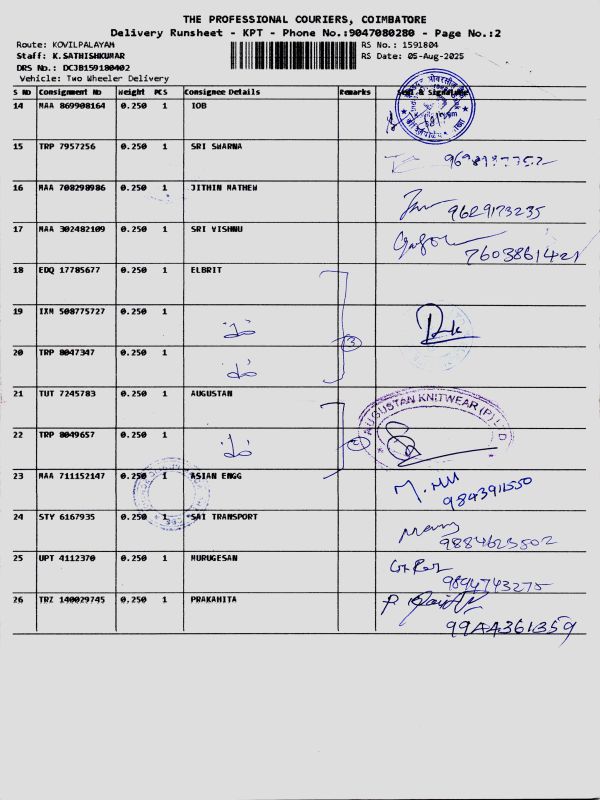 THE PROFESSIONAL COURIERS, COIMBATORE
Delivery Runsheet - KPT - Phone No.:9047080280 - Page No.:2
Route: KOVILPALAYAM RS No.: 1591804
Staff: K.SATHISHKUMAR RS Date: 05-Aug-2025
DRS No.: DCJB159180402
Vehicle: Two Wheeler Delivery
S No Consignment No Weight PCS Consignee Details Remarks Seal & Signature
14 MAA 869908164 0.250 1 IOB
15 TRP 7957256 0.250 1 SRI SWARNA
16 MAA 708298986 0.250 1 JITHIN MATHEW
9629173235
17 MAA 302482109 0.250 1 SRI VISHNU
7603861421
18 EDQ 17785677 0.250 1 ELBRIT
19 IXM 508775727 0.250 1
3
20 TRP 8047347 0.250 1
21 TUT 7245783 0.250 1 AUGUSTAN
AUGUSTAN KNITWEAR (P) LTD
22 TRP 8049657 0.250 1
2
23 MAA 711152147 0.250 1 ASIAN ENGG
9843911550
24 STY 6167935 0.250 1 SAI TRANSPORT
9884623502
25 UPT 4112370 0.250 1 MURUGESAN
9894743275
26 TRZ 140029745 0.250 1 PRAKAHITA
99AA361359